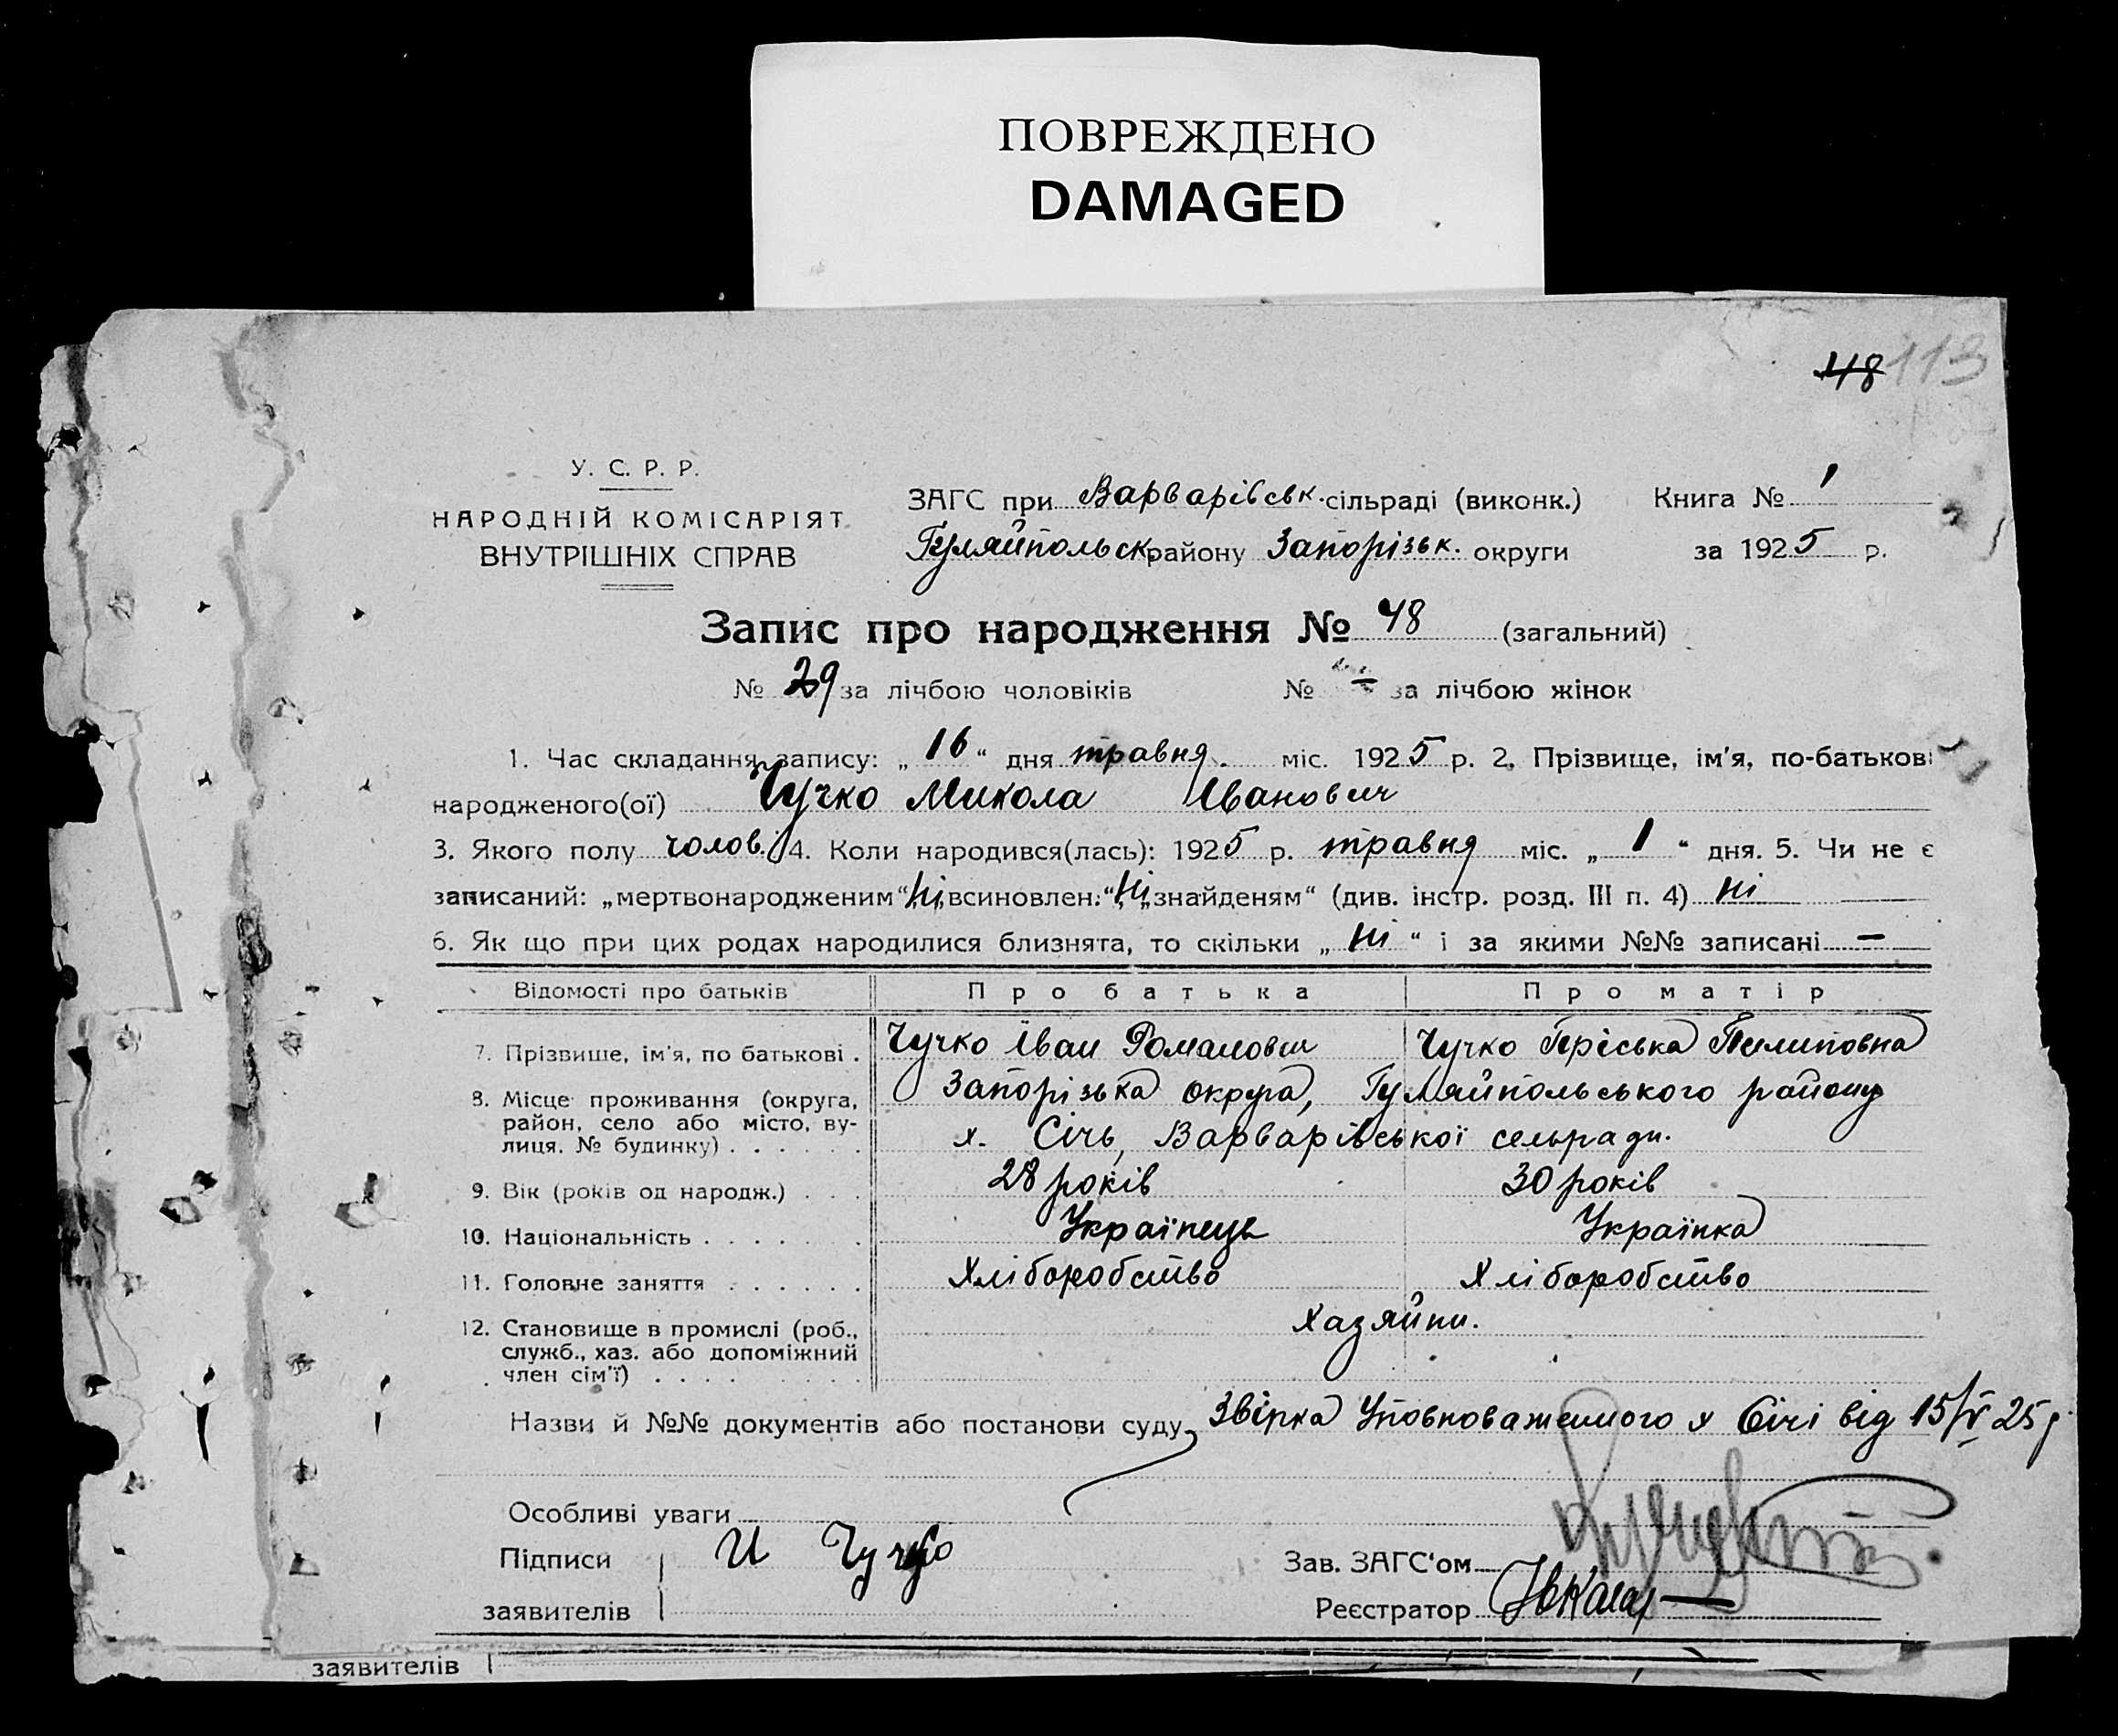 ПОВРЕЖДЕНО
DAMAGED
48 113
У. С. Р. Р.
НАРОДНІЙ КОМІСАРІЯТ
ВНУТРІШНІХ СПРАВ
ЗАГС при Варварівськ. сільраді (виконк.) Книга № 1
Гуляйпольськ району Запорізьк. округи за 1925 р.
Запис про народження № 48 (загальний)
№ 29 за лічбою чоловіків № — за лічбою жінок
1. Час складання запису: „16“ дня травня. міс. 1925 р. 2. Прізвище, ім'я, по-батькові
народженого(ої) Чучко Микола Іванович
3. Якого полу чолов. 4. Коли народився(лась): 1925 р. травня міс. „1“ дня. 5. Чи не є
записаний: „мертвонародженим“ ні „всиновлен.“ ні „знайденям“ (див. інстр. розд. III п. 4) ні
6. Як що при цих родах народилися близнята, то скільки „ні“ і за якими №№ записані —
Відомості про батьків Про батька Про матір
7. Прізвище, ім'я, по батькові . Чучко Іван Романович Чучко Пріська Пилиповна
8. Місце проживання (округа, район, село або місто, вулиця, № будинку) . . . . . . Запорізька округа, Гуляйпольського району
х. Січь, Варварівської сельради.
9. Вік (років од народж.) . . . 28 років 30 років
10. Національність . . . . . . . Українець Українка
11. Головне заняття . . . . . . Хліборобство Хліборобство
12. Становище в промислі (роб., служб., хаз. або допоміжний член сім'ї) . . . . . . . . Хазяйни.
Назви й №№ документів або постанови суду Звірка Уповноваженного х Січі від 15/V 25 р
Особливі уваги
Підписи И Чучко Зав. ЗАГС'ом
заявителів Реєстратор
заявителів